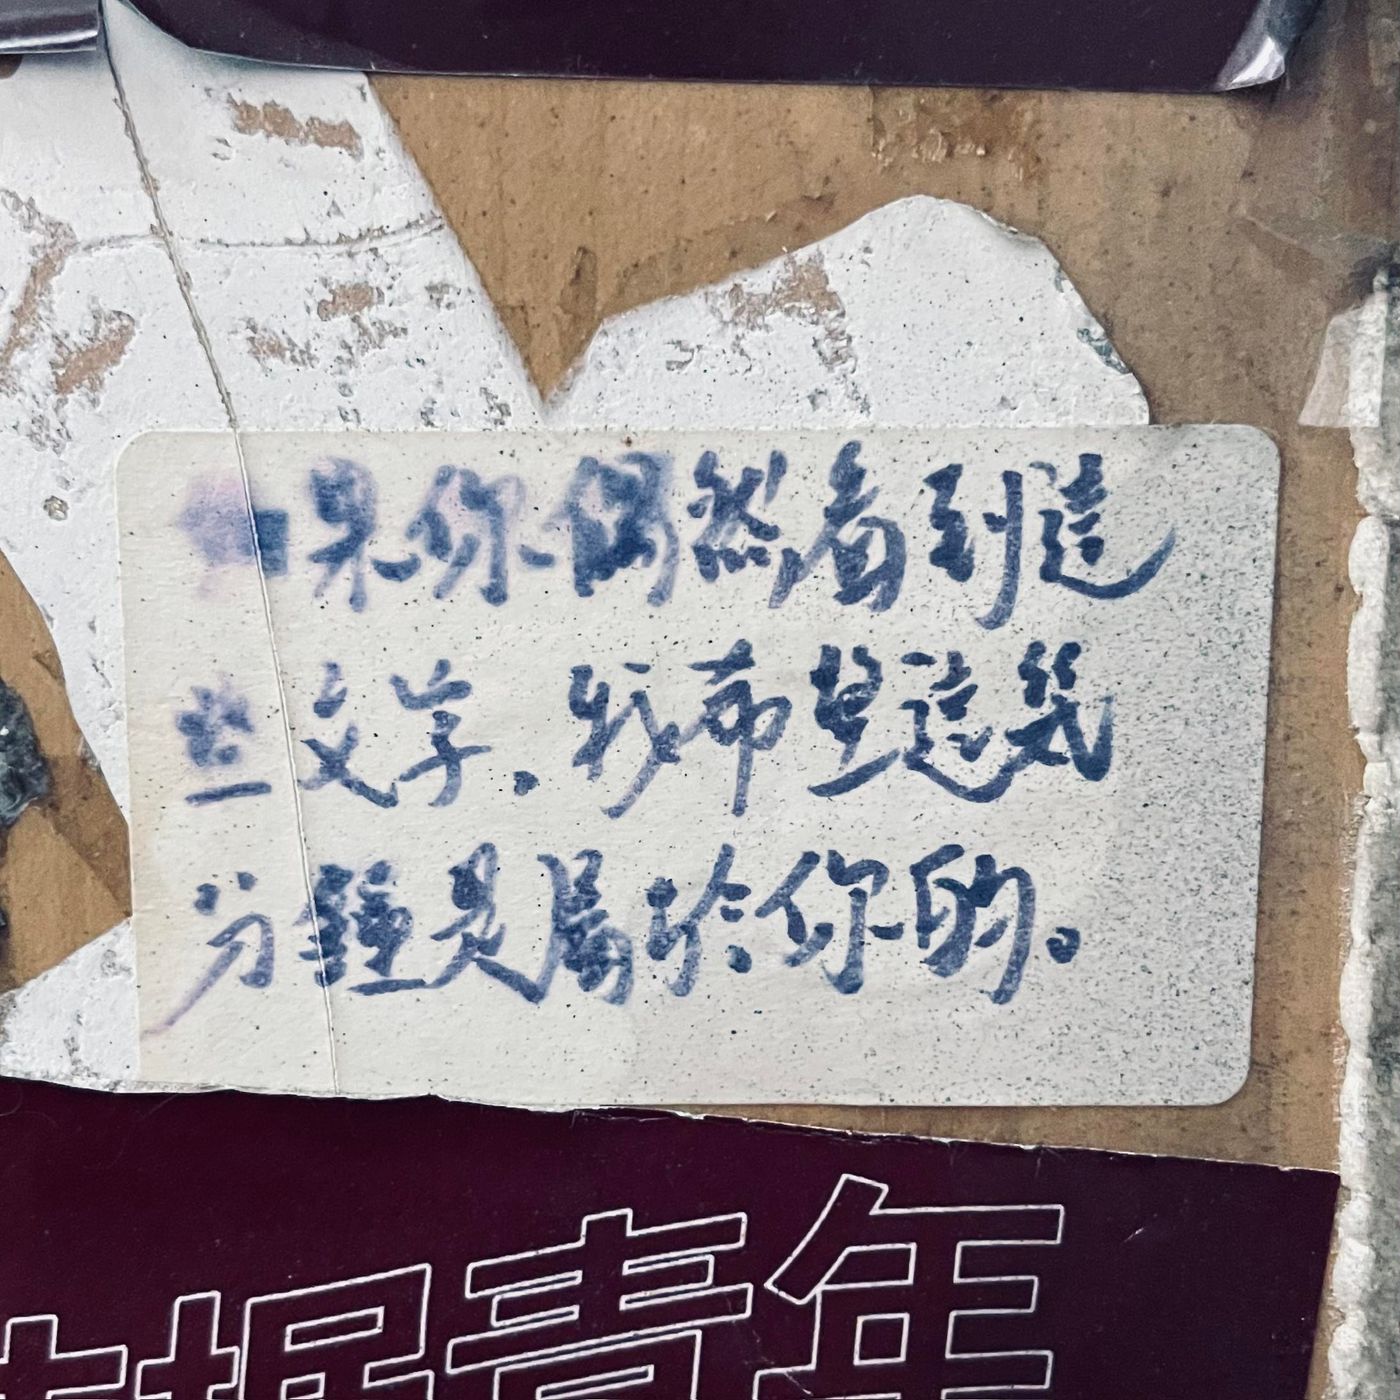 如果你偶然看到這
些文字,我希望這幾
分鐘是屬於你的。
據青年